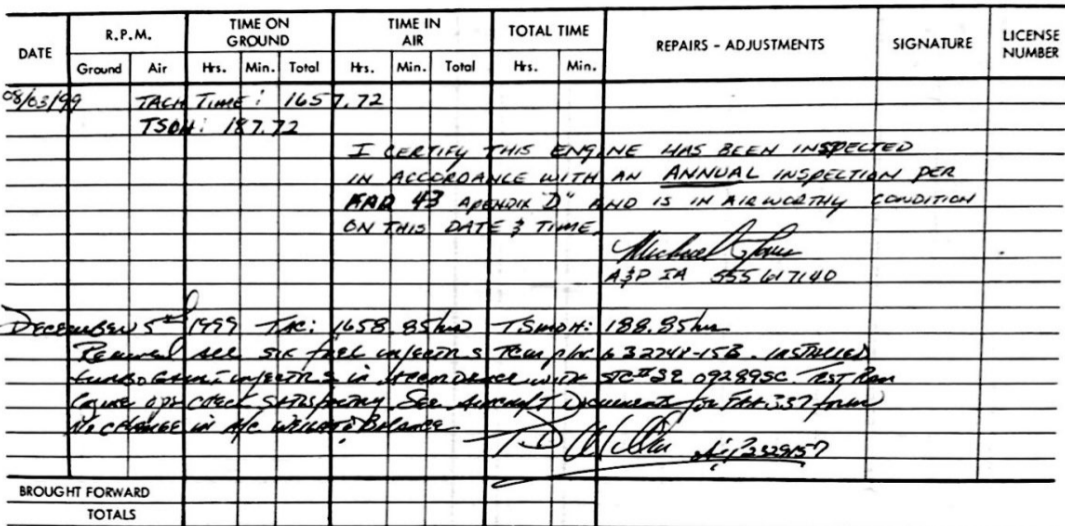 DATE R.P.M. TIME ON GROUND TIME IN AIR TOTAL TIME REPAIRS - ADJUSTMENTS SIGNATURE LICENSE NUMBER
Ground Air Hrs. Min. Total Hrs. Min. Total Hrs. Min.
08/03/99 TACH TIME: 1657.72
TSOH: 187.72
I CERTIFY THIS ENGINE HAS BEEN INSPECTED
IN ACCORDANCE WITH AN ANNUAL INSPECTION PER
FAR 43 APENDIX "D" AND IS IN AIRWORTHY CONDITION
ON THIS DATE & TIME.
Michael
A&P IA 555617140
DECEMBER 5th 1999 TAC: 1658.85hrs TSMOH: 188.85hrs
Removed all six fuel injectors TCM p/n 632748-15B. INSTALLED
injectors in accordance with STC# SE09289SC. TEST RAN
engine ops check satisfactory. See Aircraft Documents for FAA 337 form
No change in A/C weight & Balance.
A&P 2329157
BROUGHT FORWARD
TOTALS